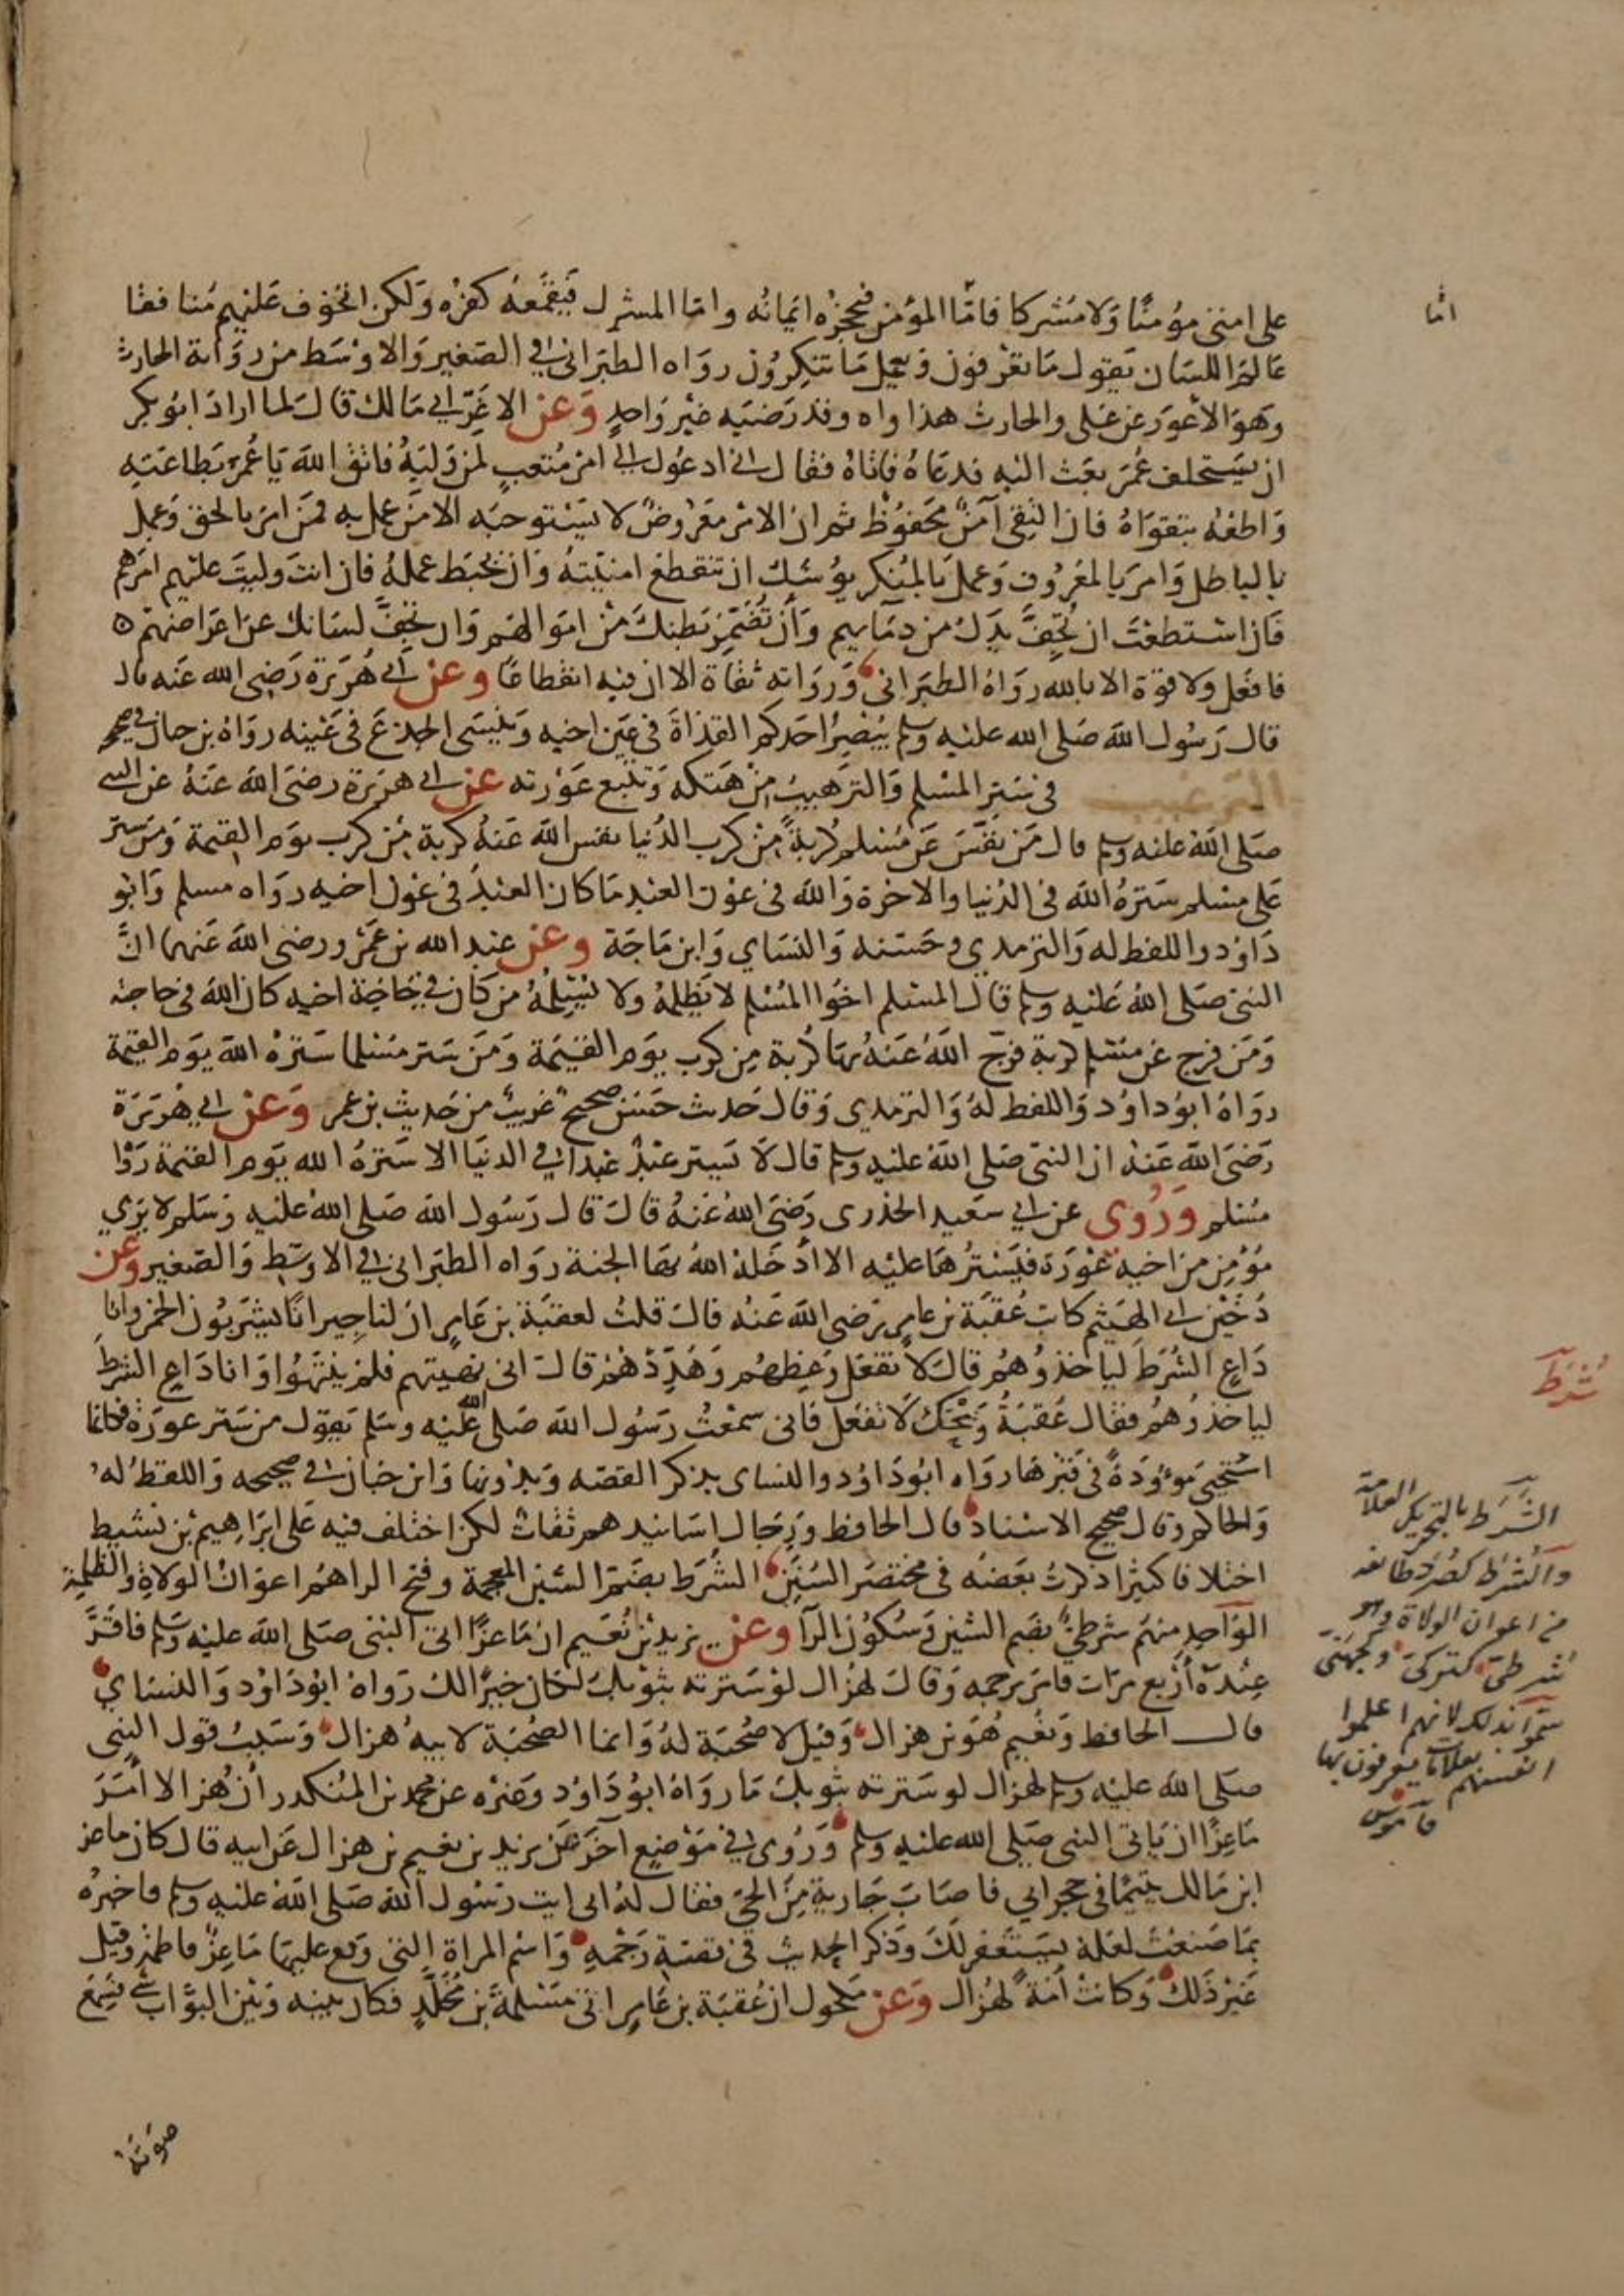 على امتى مؤمنًا وَلا مُشركا فامّا المؤمن فيحجزُه ايمانُه واما المشرك فيَقمَعهُ كفرُه وَلكن اتخوف عَليهم مُنافقا
عَالم اللسَان يَقول مَا تعرفون وَيعمل مَا تنكرُون روَاه الطبَراني في الصَغير وَالاوسَط من روَاية الحارث
وَهوَ الأعوَر عن عَلى والحارث هذا واه وقد رَضيَه غيْر وَاحدٍ وَعن الاغَرّ ابي مَالك قال لما ارادَ ابُو بكر
ان يَستخلف عُمَر بعَث اليه فدعَاهُ فاتاهُ فقال اني ادعُوك الي امر مُتعبٍ لمن وَليَهُ فاتق اللهَ يَا عُمَر بطَاعَتِه
وَاطعْهُ بتقوَاهُ فان التقى آمنٌ محفوُظ ثم ان الامر مَعْروضٌ لا يَستوجبَه الا مَن عمل به فمَن امَر بالحق وَعمل
بالباطل وَامرَ بالمعرُوف وَعمل بالمنكر يوُشك ان تنقطعَ امنيّتهُ وَان يحبَط عملهُ فان انتَ وليتَ عليهم امرَهم
فان استطعْتَ ان تُجِفَّ يدَك من دمَايهم وَأن تُضمّرَ بَطنكَ من امَوالهم وَان تجِفَّ لسَانك عن اعرَاضهمْ ه
فافعَل ولا قوة الا بالله روَاهُ الطبَراني وَروَاته ثقاة الا ان فيه انقطاعًا وعن ابي هُرَيرَة رَضِى الله عَنه قال
قال رَسُول الله صَلى الله عليْه وسلم يُبْصِرُ احَدكم القذاةَ في عَين اخيه وَينسَى الجذعَ فى عَيْنه روَاهُ بن حبان في صحيحه
الترغيب فى سَتر المسْلم وَالترَهيب مِن هَتكه وَتتبع عَوْرته عن ابي هرَيرَة رضىَ الله عَنهُ عن النبي
صَلى اللهُ عليْه وسلم قال مَن نفّسَ عَن مُسْلم كُربةً مِن كرب الدُنيا نفس الله عَنهُ كربة مِن كرب يوَم القيمة وَمَن سترَ
عَلى مسْلم سَترَهُ الله فى الدُنيا والاخرة وَالله فى عوْن العَبْد مَا كان العَبْدُ فى عَون اخيه روَاه مسلم وَابو
دَاوُد واللفظ له وَالترمدي وحَسّنه وَالنسَاي وَابن مَاجَة وعن عَبد الله بن عَمْرو رضى الله عَنهما انَّ
النبىَ صَلى اللهُ عَليْه وسلم قالَ المسْلم اخوُا المُسْلم لا يَظلمهُ ولا يُسْلِمُهُ من كانَ فى حَاجَة اخيه كان اللهُ فى حاجته
وَمَن فرج عَن مسْلم كربة فرّج اللهُ عَنهُ بهَا كُربة مِن كرب يوَم القيمَة وَمَن سَتر مسْلما سَترهُ الله يوَم القيمة
روَاهُ ابوُداوُد وَاللفظ لهُ وَالترمدي وَقال حَديث حَسَن صحيح غريبٌ من حَديث بن عمر وَعن ابي هُرَيرَة
رَضىَ اللهُ عَنهُ ان النبىّ صَلى الله عليْه وسلم قال لاَ يَستر عَبْدٌ عَبدا في الدنيَا الا سَترَهُ الله يَوم القيمة رَوَاه
مُسْلم وَرُوى عن ابي سَعيد الخدرى رَضىَ اللهُ عَنهُ قال قال رَسُول اللهَ صَلى اللهُ عَليْه وَسَلم لا يَرَي
مُؤمِن من اخيه عَوْرَة فيَسْترُهَا عليْه الا ادْخَلهُ اللهُ بهَا الجنة روَاه الطبَرانى في الاوسَط وَالصَغير وعن
دُخَيْن ابي الهَيثم كاتِب عُقبَة بن عامِر رضى اللهَ عَنْه قال قلتُ لعقبَة بن عَامِر ان لنا جِيرانًا يشرَبُون الخمر وانا
دَاعِ الشُرَط ليَاخذوُهُم قالَ لاَ تفعَل وَعِظهُم وَهَدّدْهُم قال انى نهيتهم فلم ينتهُوا وَانا دَاعِ الشرطَ
لياخذوُهُم فقال عُقبَةُ وَيْحَكَ لاَ تفعَل فانى سمعْتُ رَسُول اللهَ صَلى الله عَليْه وسَلم يَقوَل من سَتر عورَة فكانما
استحيَى مَوءوُدَةً فى قبْرهَا روَاه ابُودَاوُد والنساى بذكر القصّه وَبدُونها وَابن حبَان في صحيحه وَاللفظ لهُ
وَالحاكم وقال صحيح الاسْناد قال الحافظ وَرِجَال اسَانيده هم ثقات لكن اختلف فيه عَلى ابرَاهيم بن نشيط
اختلافا كثيرًا ذكرتُ بعَضهُ فى مختصَر السُنَن الشُرَط بضَم الشين المعجمة وفتح الرا هُم اعوَانُ الولاةِ والظلَمِة
الوَاحِد منهم شرطىٌّ بضَم الشين وَسُكوُن الرّاَ وعن يزيد بْن نُعَيم ان مَاعزًا اتى النبىَ صَلى الله عليْه وَسَلم فاقرَّ
عِنْدَهُ أرْبع مرَات فامَر برَجمِه وَقالَ لهُزال لوْ سَترته بثوبكَ لكان خيرًا لك روَاهُ ابُودَاوُد وَالنسَاي
قال الحافظ وَنعَيم هُوَ بن هزال وَقيل لا صُحبَة لهُ وَانما الصُحبَة لابيهُ هزال وَسَبَبُ قول النبى
صَلى الله عليْه وسلم لهزال لو سَترته بثوبكَ مَا روَاهُ ابُودَاوُد وَغيْره عن محمد بن المُنكدر أنّ هُزالا امَرَ
مَاعِزًا ان يَاتى النبى صَلى الله عليْه وسلم وَرُوى في مَوْضعٍ آخَر عَن يزيد بن نعيم بن هزال عَن ابيه قال كان ماعز
ابن مَالك يتيمًا فى حجر ابي فاصَابَ جَارية مِنَ الحىّ فقال لهُ ابى ايت رَسُول اللهَ صَلى اللهَ عليْه وسلم فاخبرْهُ
بمَا صَنعْتَ لعَله يَسْتغفر لكَ وَذكر الحديث في قصّةِ رَجْمِه وَاسْم المرأة التى وَقع عليهَا مَاعِزٌ فاطمَة وقيل
غَيْر ذَلكَ وَكانتْ امَةً لهُزال وَعن مَكحول ان عُقبَة بن عَامِر اتى مَسْلمَةَ بن مُخَلّدٍ فكان بينه وَبَيْن البَوّاب شىٌ فسَمعَ
صَوتَهُ
امّا
شُرَط
الشَرَط بالتحريك العلامة
والشُرَط كصُرَد طائفة
من اعوان الولاة وهو
شُرطىّ كتُركىّ وجُهَنىّ
سُمّوا بذلك لانهم اعلموا
انفسهم بعلامات يعرفون بها
قاموس